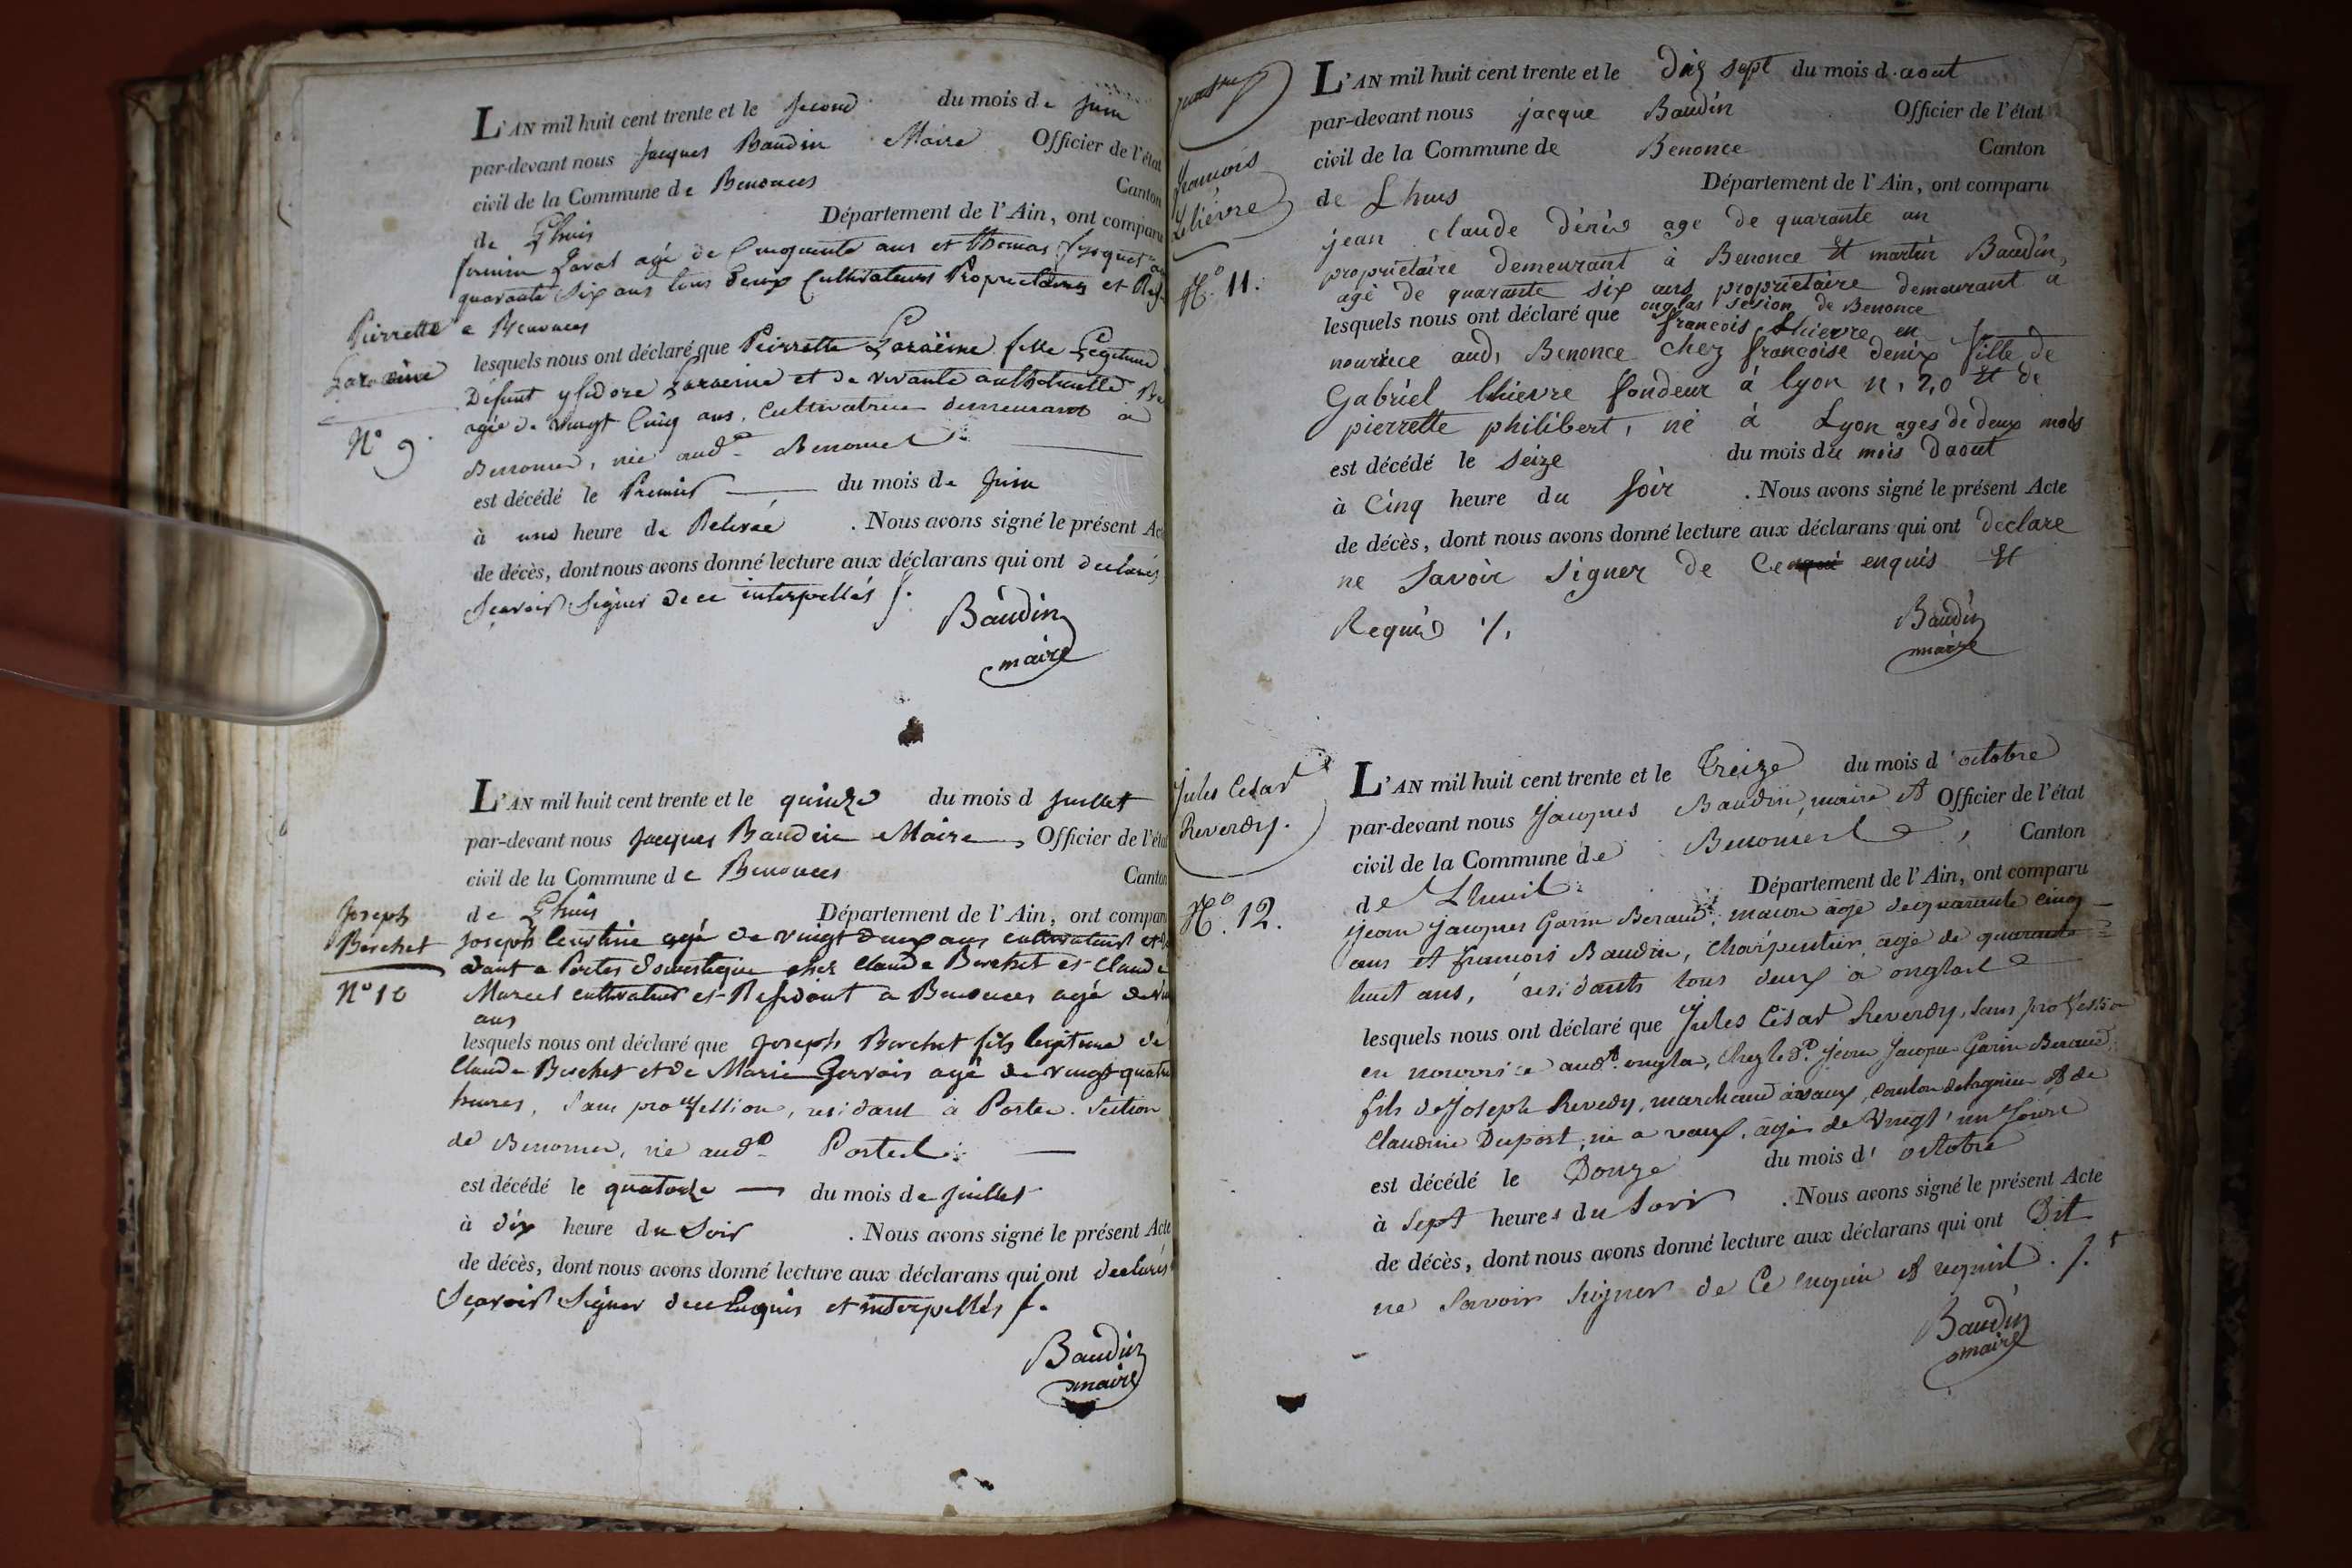 L'AN mil huit cent trente et le second du mois de Juin
par-devant nous Jacques Baudin Maire Officier de l'état
civil de la Commune de Benonces Canton
de Lhuis Département de l'Ain, ont comparu
Laval agé de Cinquante ans et thomas
quarante Six ans tous deux Cultivateurs Proprietaires et
Pierrette
a Benonces
lesquels nous ont déclaré que Peirrette Laraëine fille Legitime
Laraeine
Défunt ysidore Laraeine et de vivante anthelmette
agée de vingt Cinq ans, Cultivatrice demeurant à
N° 9.
Benonce, née aud. Benonce
est décédé le Premier du mois de Juin
à une heure de Relevée . Nous avons signé le présent Acte
de décès, dont nous avons donné lecture aux déclarans qui ont declarés
Sçavoir Signer de ce interpellés
Baudin
maire
L'AN mil huit cent trente et le quinze du mois d Juillet
par-devant nous Jacques Baudin Maire Officier de l'état
civil de la Commune de Benonces Canton
de Lhuis Département de l'Ain, ont comparu
Joseph
Berchet
Joseph agé de vingt deux ans cultivateur et
dant a Portes domestique chez Claude Berchet et Claude
N° 10
Marcel cultivateur et Residant a Benonces agé de
ans
lesquels nous ont déclaré que Joseph Berchet fils legitime de
Claude Berchet et de Marie Gervais agé de vingt quatre
heures, Sans proffession, residant à Portes. Section
de Benonce, né aud. Portes
est décédé le quatorze du mois de Juillet
à dix heure du Soir . Nous avons signé le présent Acte
de décès, dont nous avons donné lecture aux déclarans qui ont declarés
Sçavoir Signer de ce Enquis et interpellés
Baudin
maire
L'AN mil huit cent trente et le dix sept du mois d. aout
par-devant nous jacque Baudin Officier de l'état
civil de la Commune de Benonce Canton
francois
Lhiévre
de Lhuis Département de l'Ain, ont comparu
jean claude dénis age de quarante an
proprietaire demeurant à Benonce et martin Baudin,
N° 11.
agé de quarante six ans proprietaire demeurant a
onglas section de Benonce
lesquels nous ont déclaré que francois Lhievre en
nourice aud, Benonce chez francoise denix fille de
Gabriel lhievre fondeur à lyon n, 20 et de
pierrette philibert, né à Lyon ages de deux mois
est décédé le seize du mois du mois daout
à Cinq heure du soir . Nous avons signé le présent Acte
de décès, dont nous avons donné lecture aux déclarans qui ont declare
ne savoir signer de Ce enquis et
Requis ./.
Baudin
maire
L'AN mil huit cent trente et le Treize du mois d'octobre
Jules César
Reverdy.
par-devant nous Jacques Baudin, maire et Officier de l'état
civil de la Commune de Benonces Canton
de Lhuis Département de l'Ain, ont comparu
N° 12.
jean jacques Garin Beraud, macon âgé de quarante cinq
ans et francois Baudin, Charpentier âgé de quarante
huit ans, residants tous deux à onglas
lesquels nous ont déclaré que Jules César Reverdy, sans profession
en nourrice audt. ongla, chez le d. jean Jacques Garin Beraud,
fils de Joseph Reverdy, marchand à vaux, canton de lagnieu et de
Claudine Duport, né a vaux, âgé de Vingt un Jours
est décédé le Douze du mois d' octobre
à Sept heures du soir . Nous avons signé le présent Acte
de décès, dont nous avons donné lecture aux déclarans qui ont Dit
ne savoir signer de Ce enquis et requis ./.
Baudin
maire